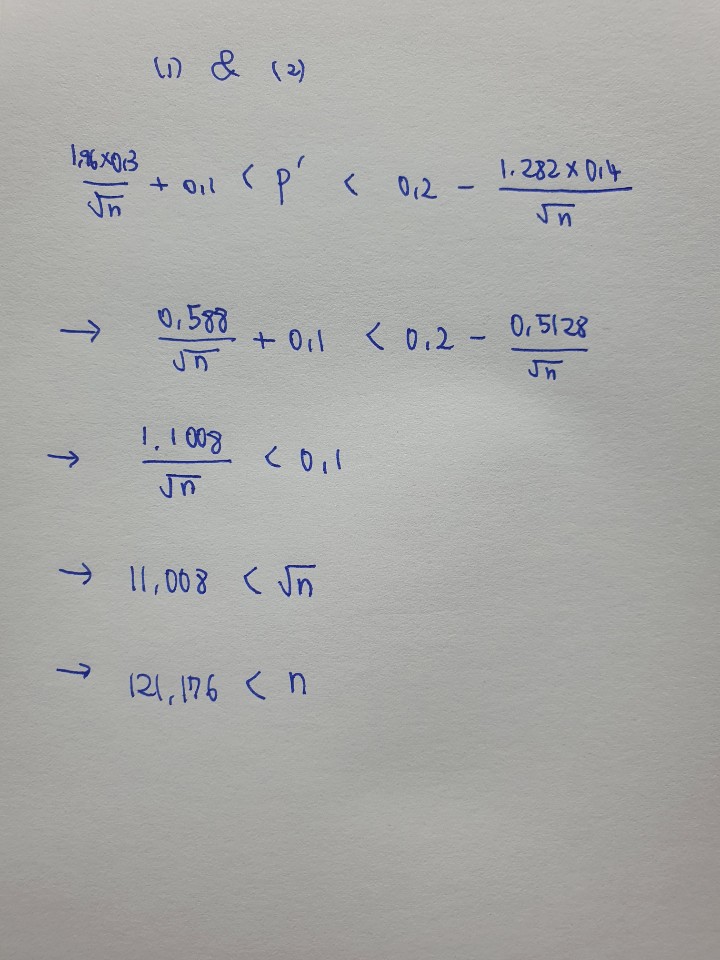 (1) & (2)
1.96×0.3/√n + 0.1 < p′ < 0.2 − 1.282×0.4/√n
→ 0.588/√n + 0.1 < 0.2 − 0.5128/√n
→ 1.1008/√n < 0.1
→ 11.008 < √n
→ 121.176 < n